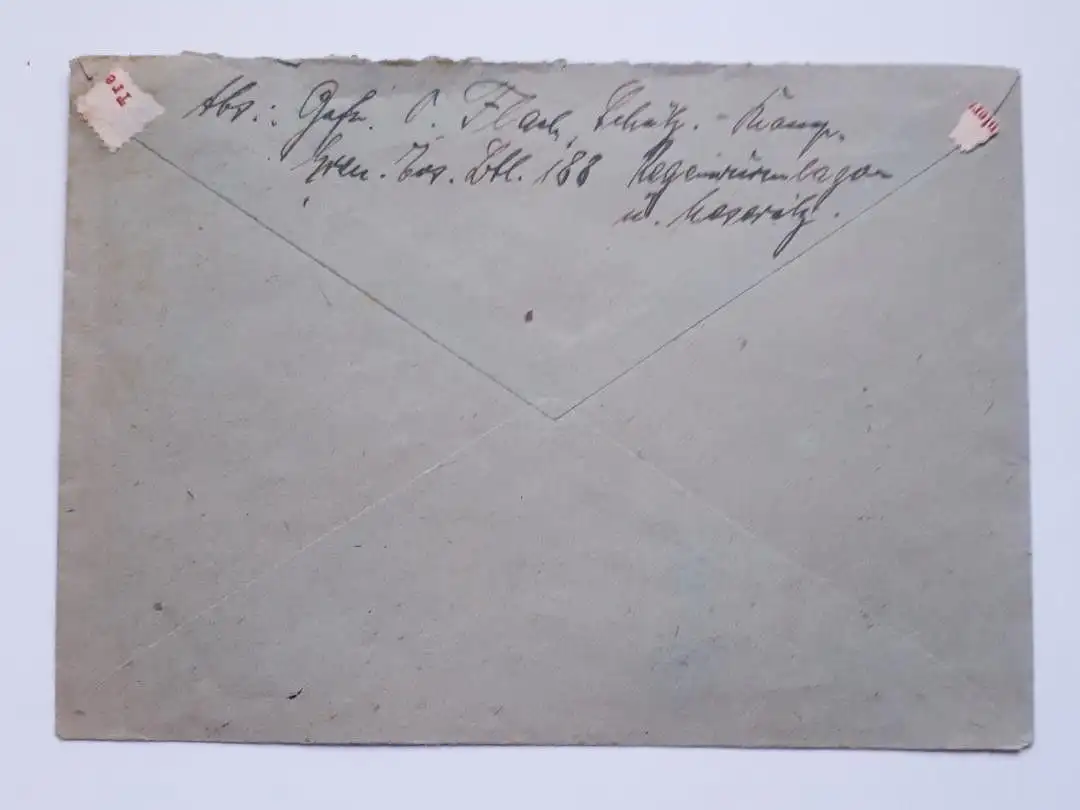 Abs.: Gefr. O. Flach, Schütz. Komp.
Gren. Ers. Btl. 188 Regenwurmlager
ü. Meseritz.
Tre